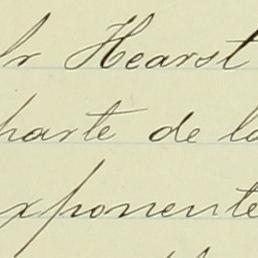 Sr Hearst
parte de la
exponente